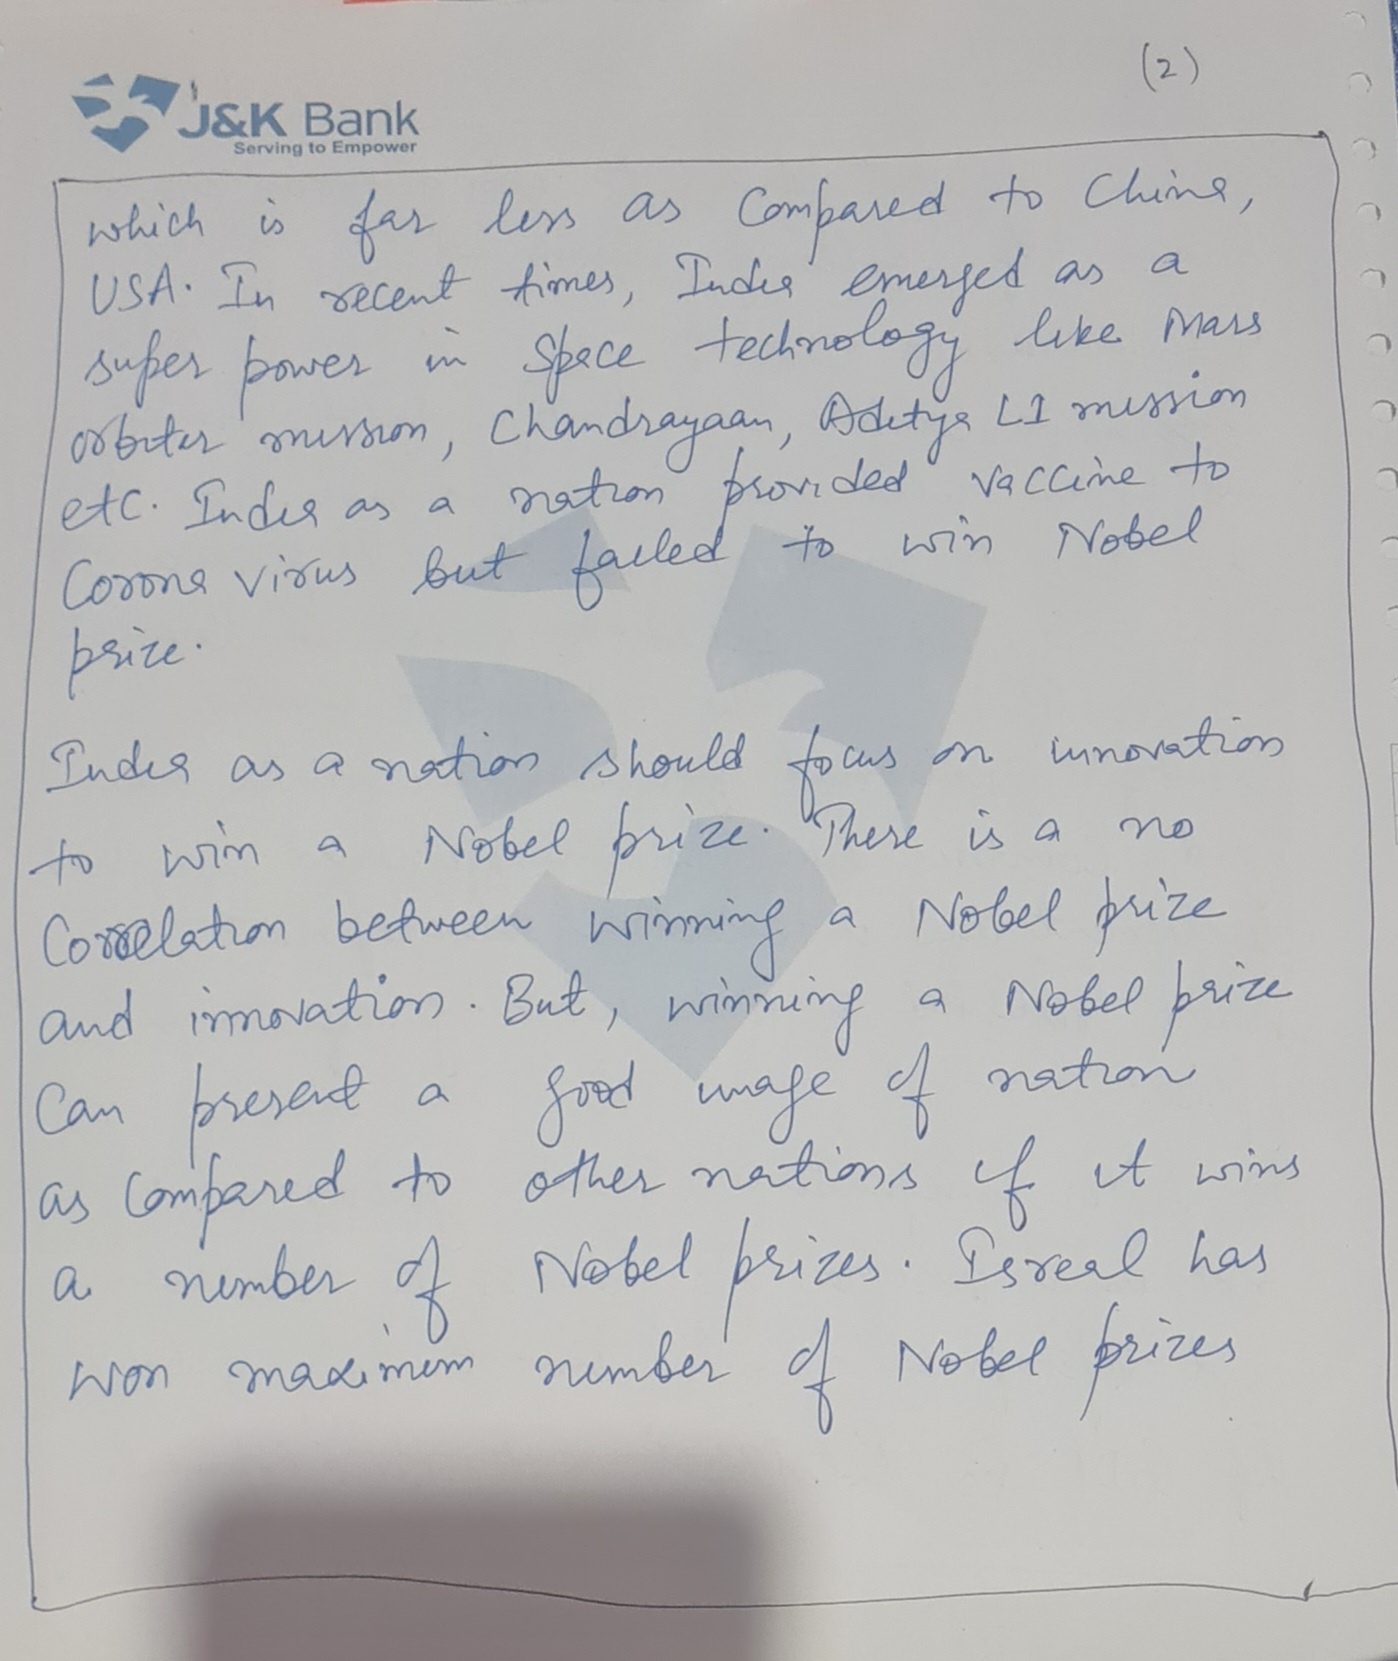 (2)
J&K Bank
Serving to Empower
which is far less as compared to China,
USA. In recent times, India emerged as a
super power in space technology like Mars
orbiter mission, Chandrayaan, Aditya L1 mission
etc. India as a nation provided vaccine to
Corona virus but failed to win Nobel
prize.
India as a nation should focus on innovation
to win a Nobel prize. There is a no
Correlation between winning a Nobel prize
and innovation. But, winning a Nobel prize
Can present a good image of nation
as compared to other nations if it wins
a number of Nobel prizes. Isreal has
won maximum number of Nobel prizes